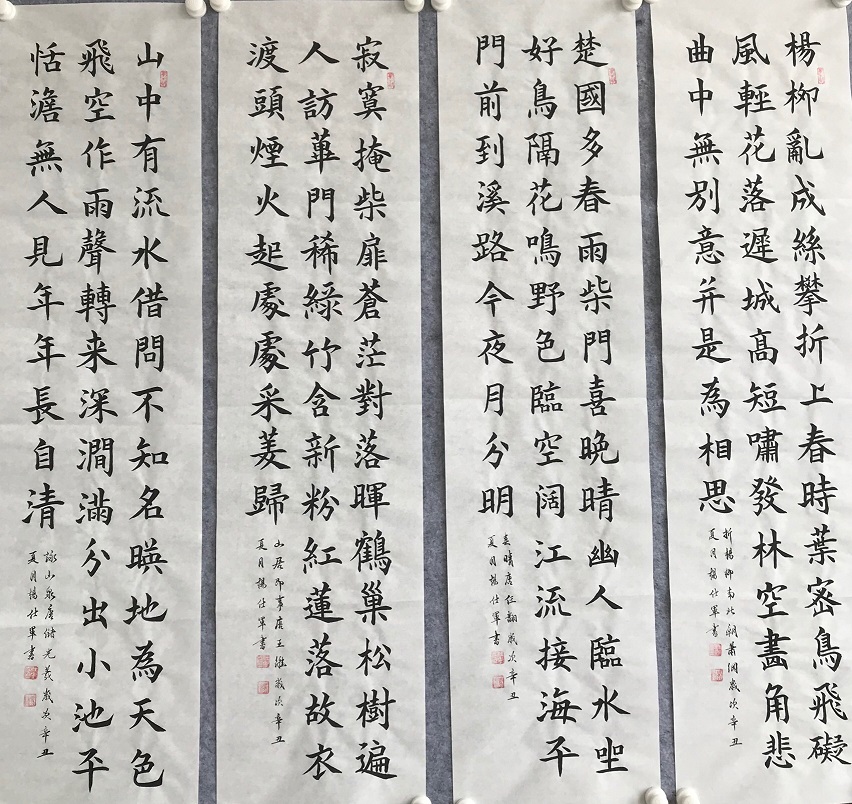 楊柳亂成絲攀折上春時葉密鳥飛礙
風輕花落遲城高短嘯發林空畫角悲
曲中無別意并是為相思
折楊柳南北朝蕭綱歲次辛丑
夏月楊仕軍書
楚國多春雨柴門喜晚晴幽人臨水坐
好鳥隔花鳴野色臨空闊江流接海平
門前到溪路今夜月分明
春晴唐任翻歲次辛丑
夏月楊仕軍書
寂寞掩柴扉蒼茫對落暉鶴巢松樹遍
人訪蓽門稀綠竹含新粉紅蓮落故衣
渡頭煙火起處處采菱歸
山居即事唐王維歲次辛丑
夏月楊仕軍書
山中有流水借問不知名暎地為天色
飛空作雨聲轉来深澗滿分出小池平
恬澹無人見年年長自清
詠山泉唐儲光羲歲次辛丑
夏月楊仕軍書